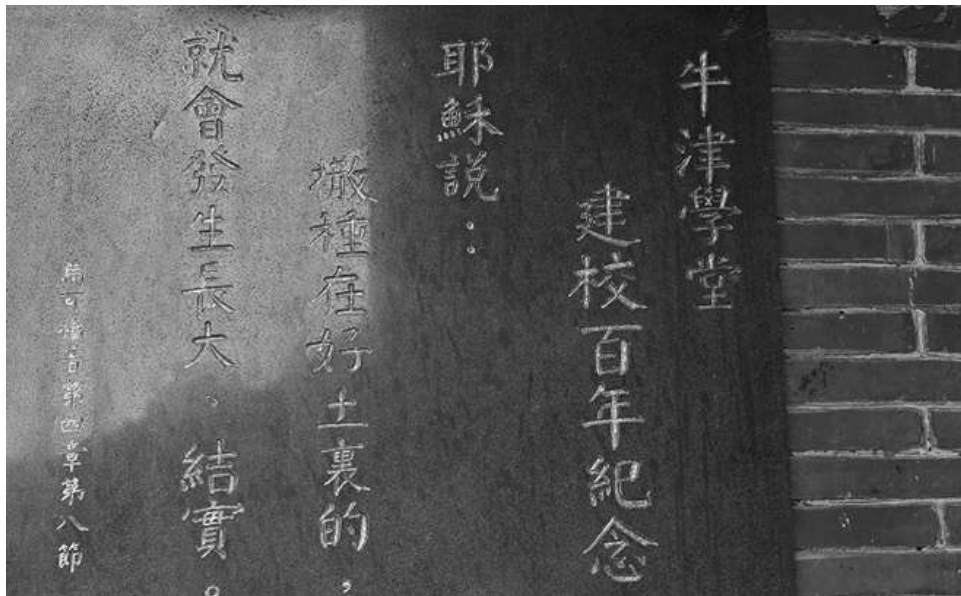 牛津學堂
建校百年紀念
耶穌説：
撒種在好土裏的，
就會發生長大、結實。
馬可福音第四章第八節